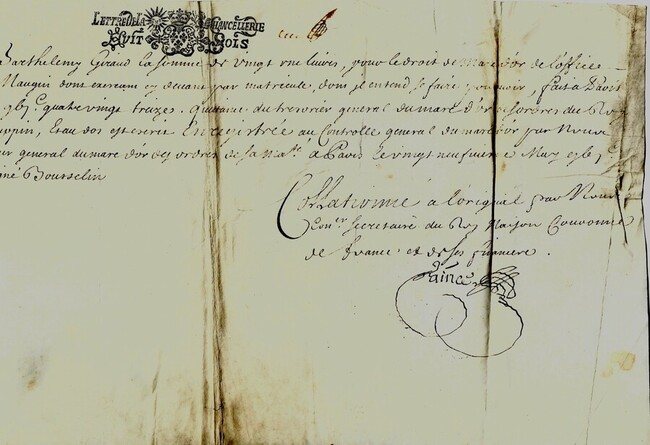 LETTRE DE LA CHANCELLERIE
HUIT SOLS
Barthelemy Giraud la somme de vingt une livres, pour le droit de marc d'or de l'office
Maugin dont exercant cy devant par matricule, dont il entend se faire pourvoir, fait a Paris
quatre vingt treize. Quittance du tresorier general du marc d'or des ordres du Roy
Et au dos est ecrit Enregistrée au Controlle general du marc d'or par Nous
general du marc d'or des ordres de sa Ma.té a Paris le vingt neuf.e May
Bousselin
Collationné a l'original par Nous
Con.er Secretaire du Roy Maison Couronne
de France et de ses finances.
Lainé